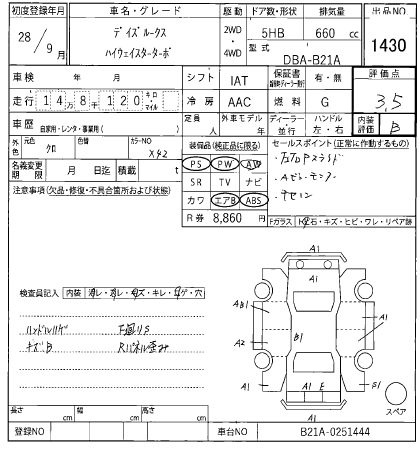 初度登録年月 車名・グレード 駆動 ドア数・形状 排気量 出品NO
28/9月 デイズルークス 2WD・4WD 5HB 660 cc 1430
ハイウェイスターターボ 型式 DBA-B21A
車検 年 月 シフト IAT 保証書 有・無 評価点
走行 14万8千120 キロ・マイル 冷房 AAC 燃料 G 3.5
車歴 自家用・レンタ・事業用( ) 定員 人 外車モデル 年 ディーラー・並行 ハンドル 左・右 内装評価 B
外色 元色 クロ 色替 カラーNO X42
装備品(純正品に限る) セールスポイント(正常に作動するもの)
名義変更期限 月 日 月迄 積載 t
PS PW AW
SR TV ナビ
カワ エアB ABS
R券 8,860 円
注意事項(欠品・修復・不具合箇所および状態)
Fガラス 石・キズ・ヒビ・ワレ・リペア跡
A1
A1
AB1
A1
B1
A2
A1
A1 E
S1
A1
スペア
検査員記入 内装
ハンドルハゲ 下廻りS
キズB Rパネル歪み
長さ cm 幅 cm 高さ cm
登録NO 車台NO B21A-0251444